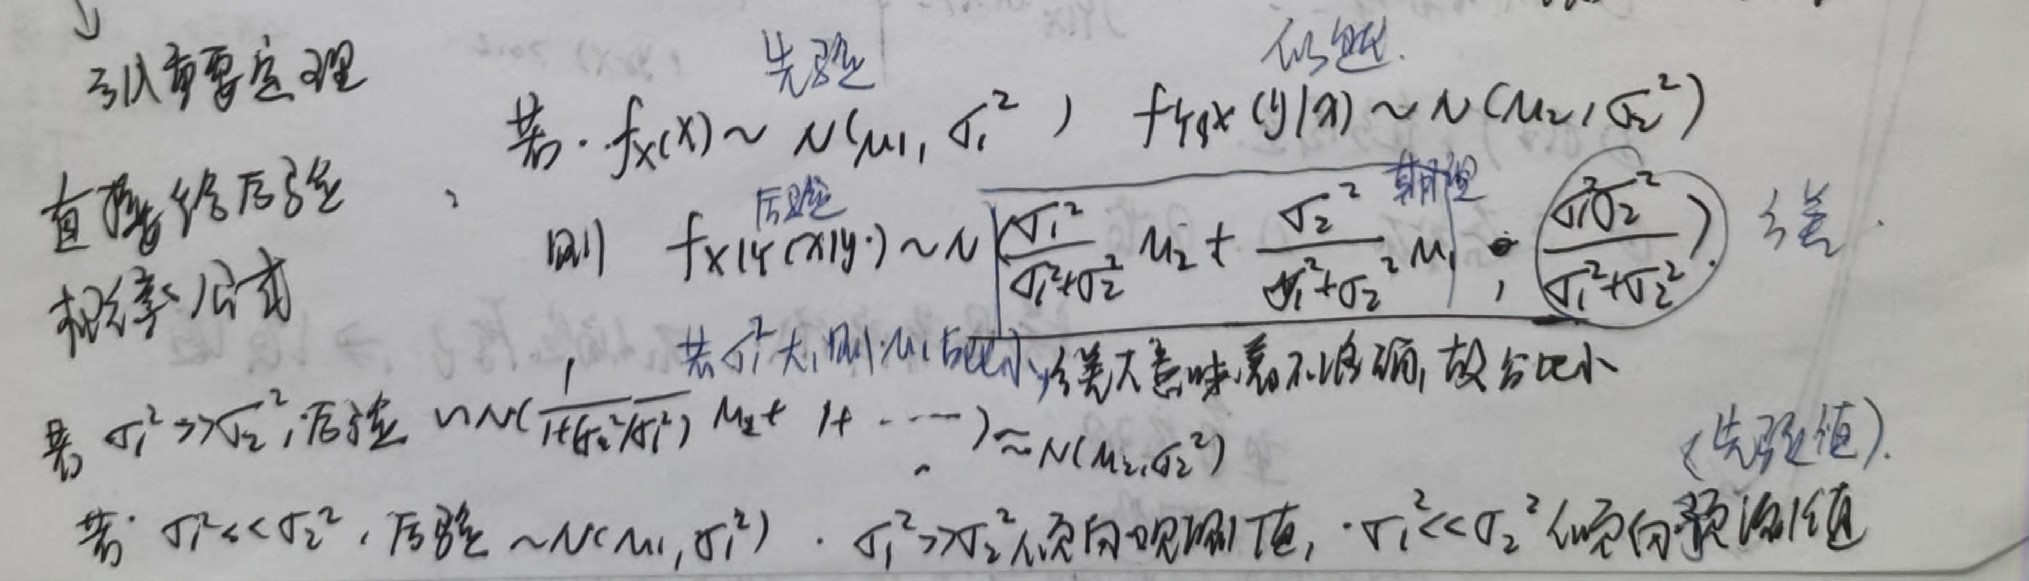 引入重要定理
先验
似然.
若. fx(x)~ N(μ1, σ1²) , fY|X(y|x)~N(μ2, σ2²)
直接给后验
概率公式
后验
期望
则 fX|Y(x|y)~N(σ1²/(σ1²+σ2²) μ2 + σ2²/(σ1²+σ2²) μ1 , σ1²σ2²/(σ1²+σ2²)). 方差.
若σ1²大,则μ1占比小,方差大意味着不准确,故占比小
若 σ1²>>σ2²,后验 ~N(1/(1+(σ2²/σ1²)) μ2+ 1+ ······)≈N(μ2,σ2²)
(先验值).
若 σ1²<<σ2²,后验~N(μ1,σ1²). σ1²>>σ2²倾向观测值,σ1²<<σ2²倾向预测值